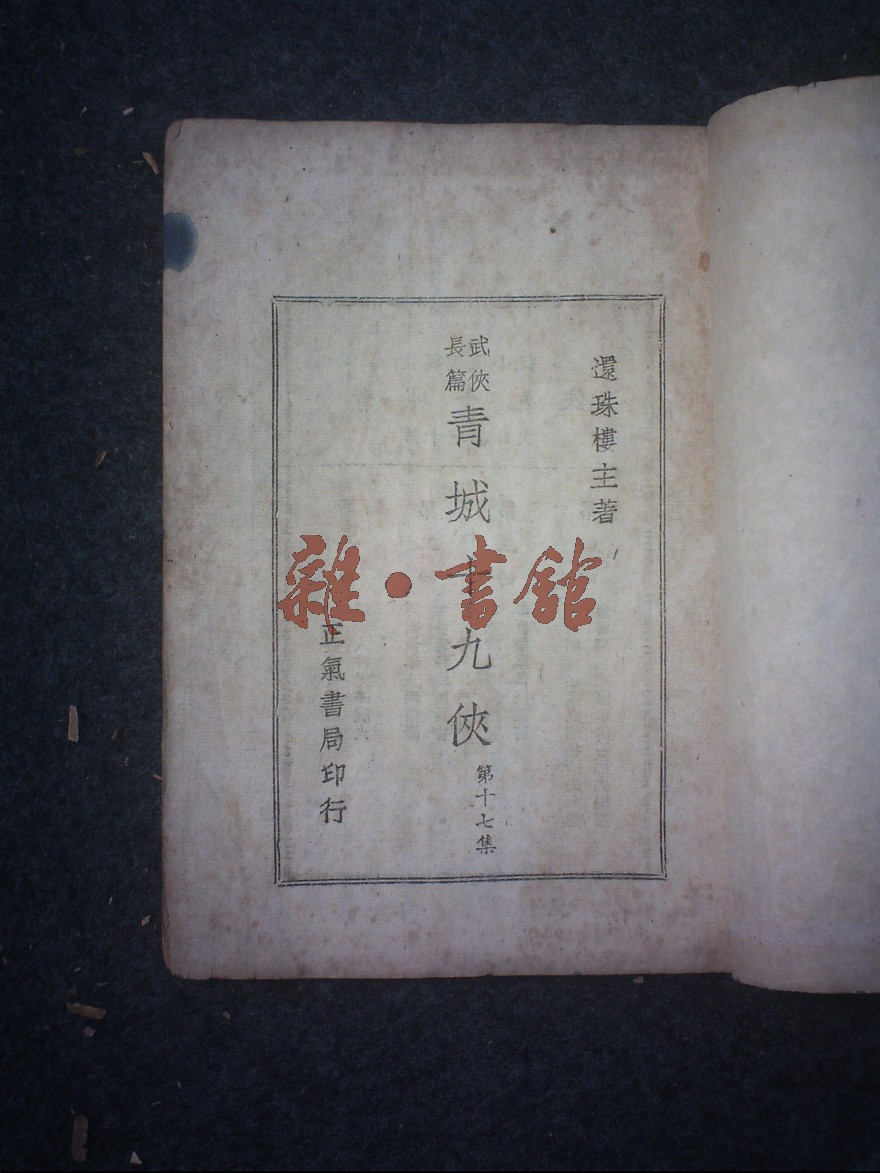 還珠樓主著
武俠
長篇
青城十九俠
第十七集
正氣書局印行
雜·書館